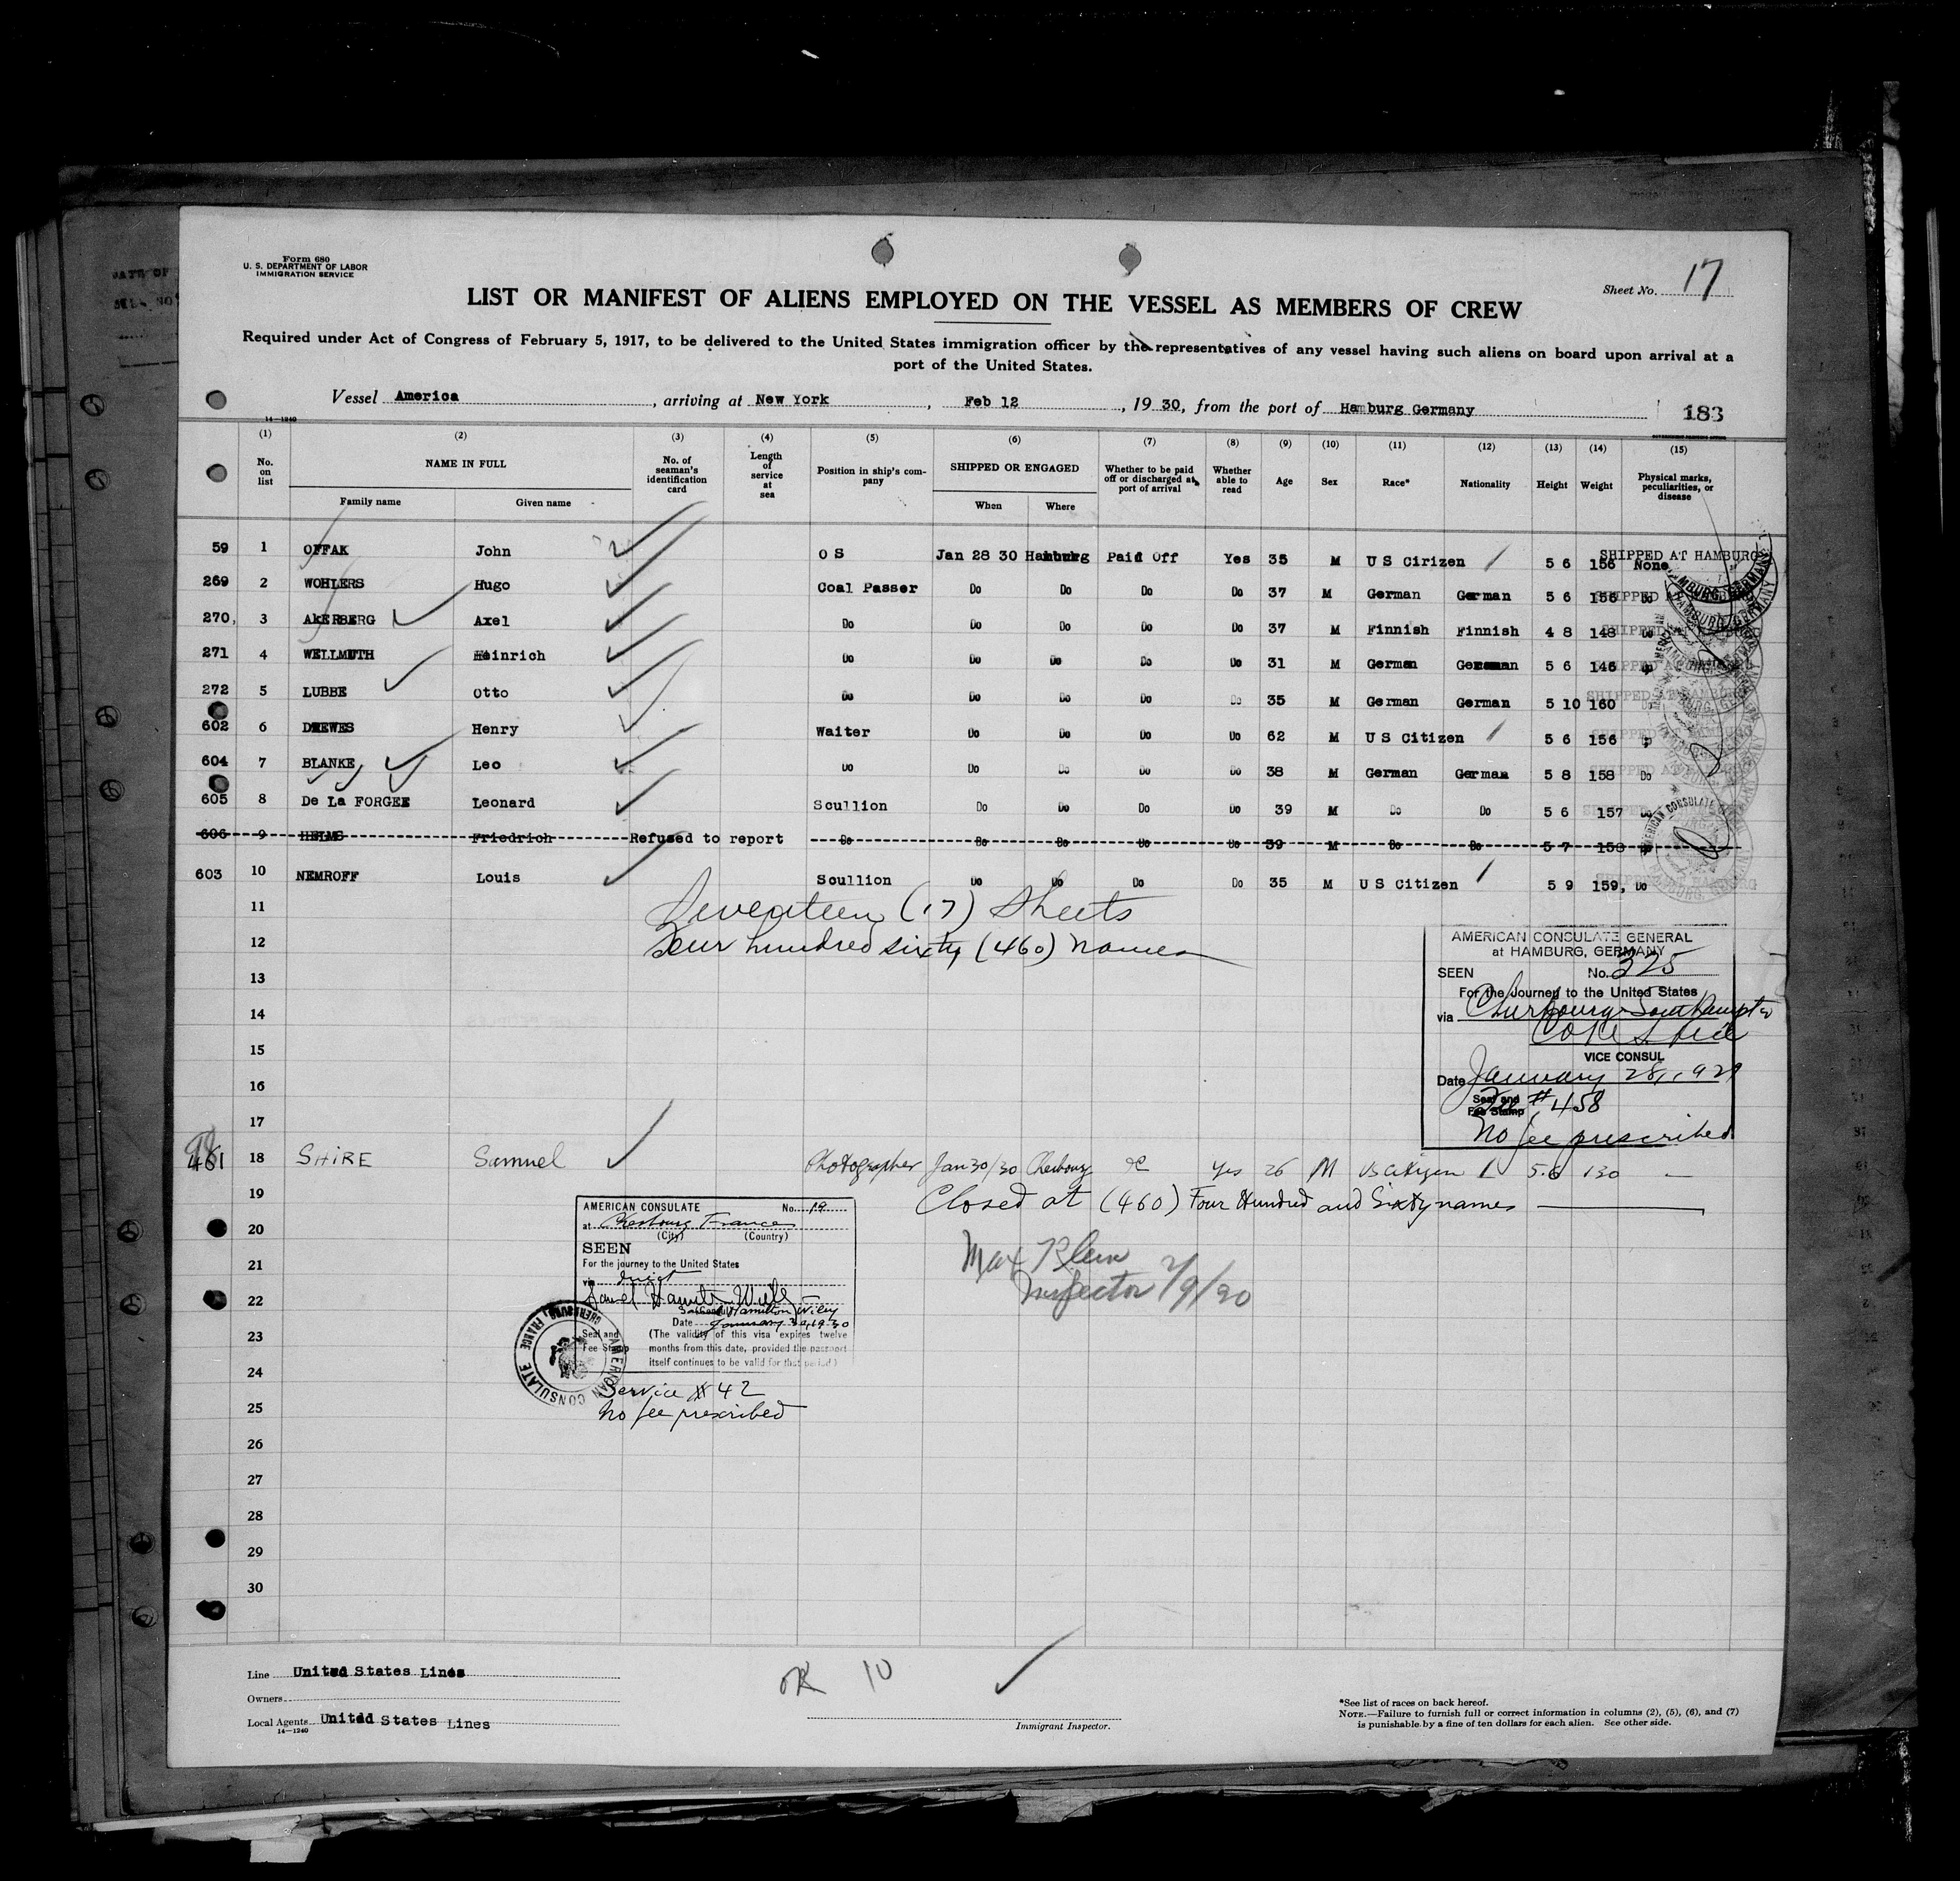 Form 680
U. S. DEPARTMENT OF LABOR
IMMIGRATION SERVICE
Sheet No. 17
LIST OR MANIFEST OF ALIENS EMPLOYED ON THE VESSEL AS MEMBERS OF CREW
Required under Act of Congress of February 5, 1917, to be delivered to the United States immigration officer by the representatives of any vessel having such aliens on board upon arrival at a
port of the United States.
Vessel America, arriving at New York, Feb 12, 19 30, from the port of Hamburg Germany
183
14—1240
(1) (2) (3) (4) (5) (6) (7) (8) (9) (10) (11) (12) (13) (14) (15)
No. on list NAME IN FULL Family name Given name No. of seaman's identification card Length of service at sea Position in ship's company SHIPPED OR ENGAGED When Where Whether to be paid off or discharged at port of arrival Whether able to read Age Sex Race* Nationality Height Weight Physical marks, peculiarities, or disease
59 1 OFFAK John O S Jan 28 30 Hamburg Paid Off Yes 35 M U S Cirizen 5 6 156 None SHIPPED AT HAMBURG
269 2 WOHLERS Hugo Coal Passer Do Do Do Do 37 M German German 5 6 156 Do
270 3 AkERBERG Axel Do Do Do Do Do 37 M Finnish Finnish 4 8 148 Do
271 4 WELLMUTH Heinrich Do Do Do Do Do 31 M German German 5 6 146 Do
272 5 LUBBE Otto Do Do Do Do Do 35 M German German 5 10 160 Do
602 6 DREWES Henry Waiter Do Do Do Do 62 M U S Citizen 5 6 156 Do
604 7 BLANKE Leo Do Do Do Do Do 38 M German German 5 8 158 Do
605 8 De La FORGEE Leonard Scullion Do Do Do Do 39 M Do Do 5 6 157 Do
606 9 HELMS Friedrich Refused to report Do Do Do Do Do 39 M Do Do 5 7 158 Do
603 10 NEMROFF Louis Scullion Do Do Do Do 35 M U S Citizen 5 9 159, Do
11 Seventeen (17) Sheets
12 Four hundred sixty (460) names
AMERICAN CONSULATE GENERAL
at HAMBURG, GERMANY
13
SEEN No. 325
For the Journey to the United States
14
via Cherbourg Southampton
15
VICE CONSUL
16
Date January 28, 1929
Seal and
Fee Stamp # 458
17
No fee prescribed
461 18 SHIRE Samuel Photographer Jan 30/30 Cherbourg Yes 26 M US Citizen 5.6 130 —
19 Closed at (460) Four Hundred and Sixty names
AMERICAN CONSULATE No. 19
20
at Cherbourg France
(City) (Country)
SEEN
21
For the journey to the United States
via direct
Max Klein
Inspector 2/9/30
22
Samuel Hamilton Wiley
Date January 30, 1930
23
Seal and Fee Stamp
(The validity of this visa expires twelve
months from this date, provided the passport
itself continues to be valid for that period)
AMERICAN CONSULATE CHERBOURG, FRANCE
24
Service # 42
25
No fee prescribed
26
27
28
29
30
Line United States Lines
OK 10
Owners
Local Agents United States Lines
14—1240
Immigrant Inspector.
*See list of races on back hereof.
NOTE.—Failure to furnish full or correct information in columns (2), (5), (6), and (7)
is punishable by a fine of ten dollars for each alien. See other side.